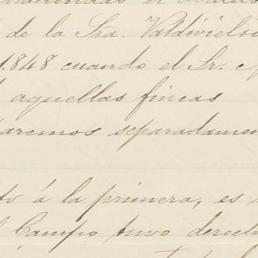 de la Sra. Valdiviels
1848 cuando el Sr.
aquellas fincas
aremos separadamen
to á la primera, es
Campo tuvo derech